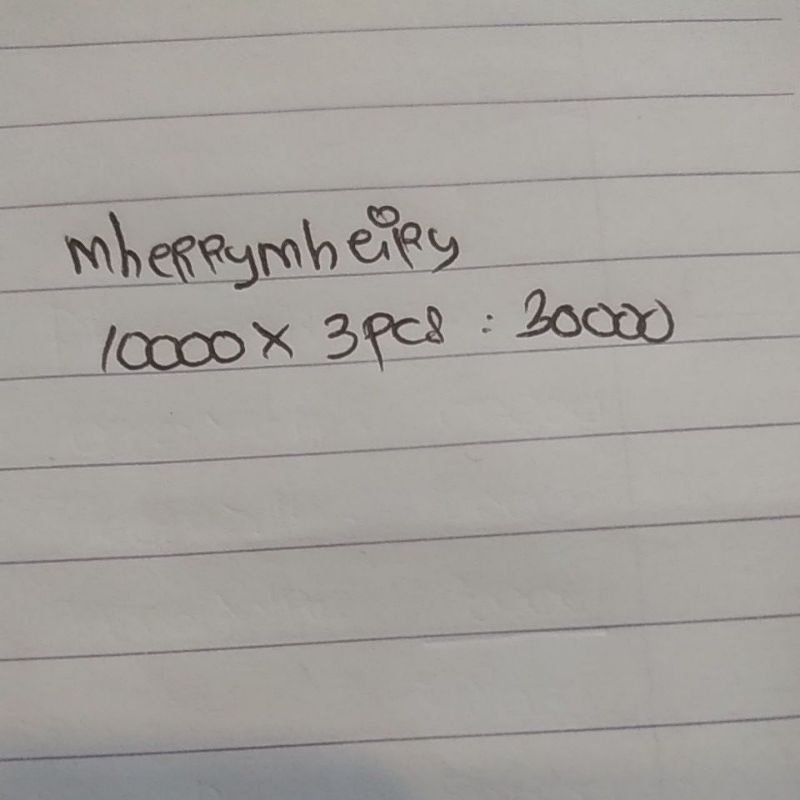 mherrymheiry
10000 x 3 pcs : 30000